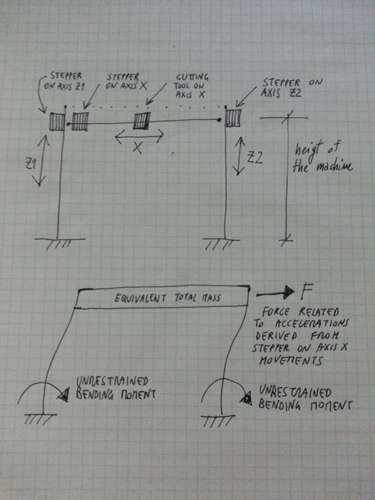 STEPPER
ON AXIS Z1
STEPPER
ON AXIS X
CUTTING
TOOL ON
AXIS X
STEPPER ON
AXIS Z2
Z1
X
Z2
heigt of
the machine
EQUIVALENT TOTAL MASS
F
FORCE RELATED
TO ACCELERATIONS
DERIVED FROM
STEPPER ON AXIS X
MOVEMENTS
UNRESTRAINED
BENDING MOMENT
UNRESTRAINED
BENDING MOMENT